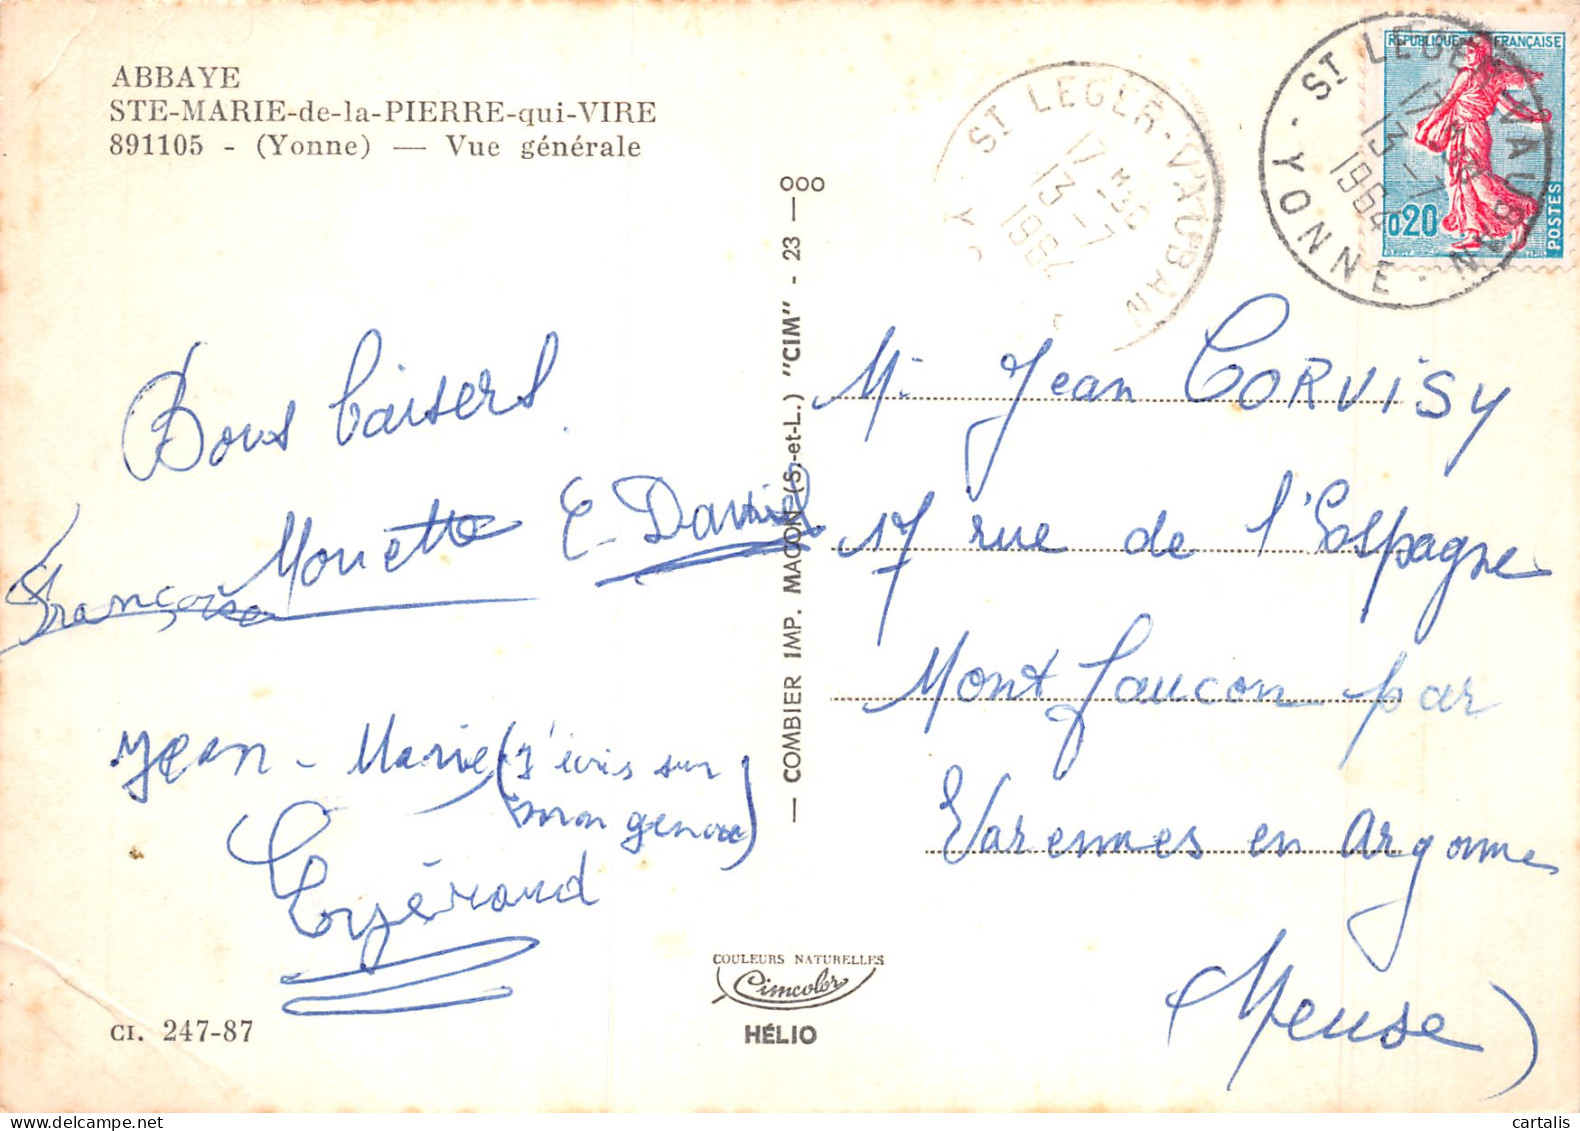 ABBAYE
STE-MARIE-de-la-PIERRE-qui-VIRE
891105 - (Yonne) — Vue générale
Bons baisers
Mouette E. Daniel
Françoise
Jean-Marie (j'écris sur
mon genou)
Gérard
CI. 247-87
— COMBIER IMP. MACON (S.-et-L.) "CIM" - 23 — ooo
COULEURS NATURELLES
Cimcolor
HÉLIO
ST LEGER-VAUBAN
17H30
13-7
1964
Y
REPUBLIQUE FRANÇAISE
0,20
POSTES
ST LEGER-VAUBAN
17H30
13-7
1964
YONNE
M. Jean CORVISY
17 rue de l'Espagne
Montfaucon par
Varennes en Argonne
(Meuse)
cartalis